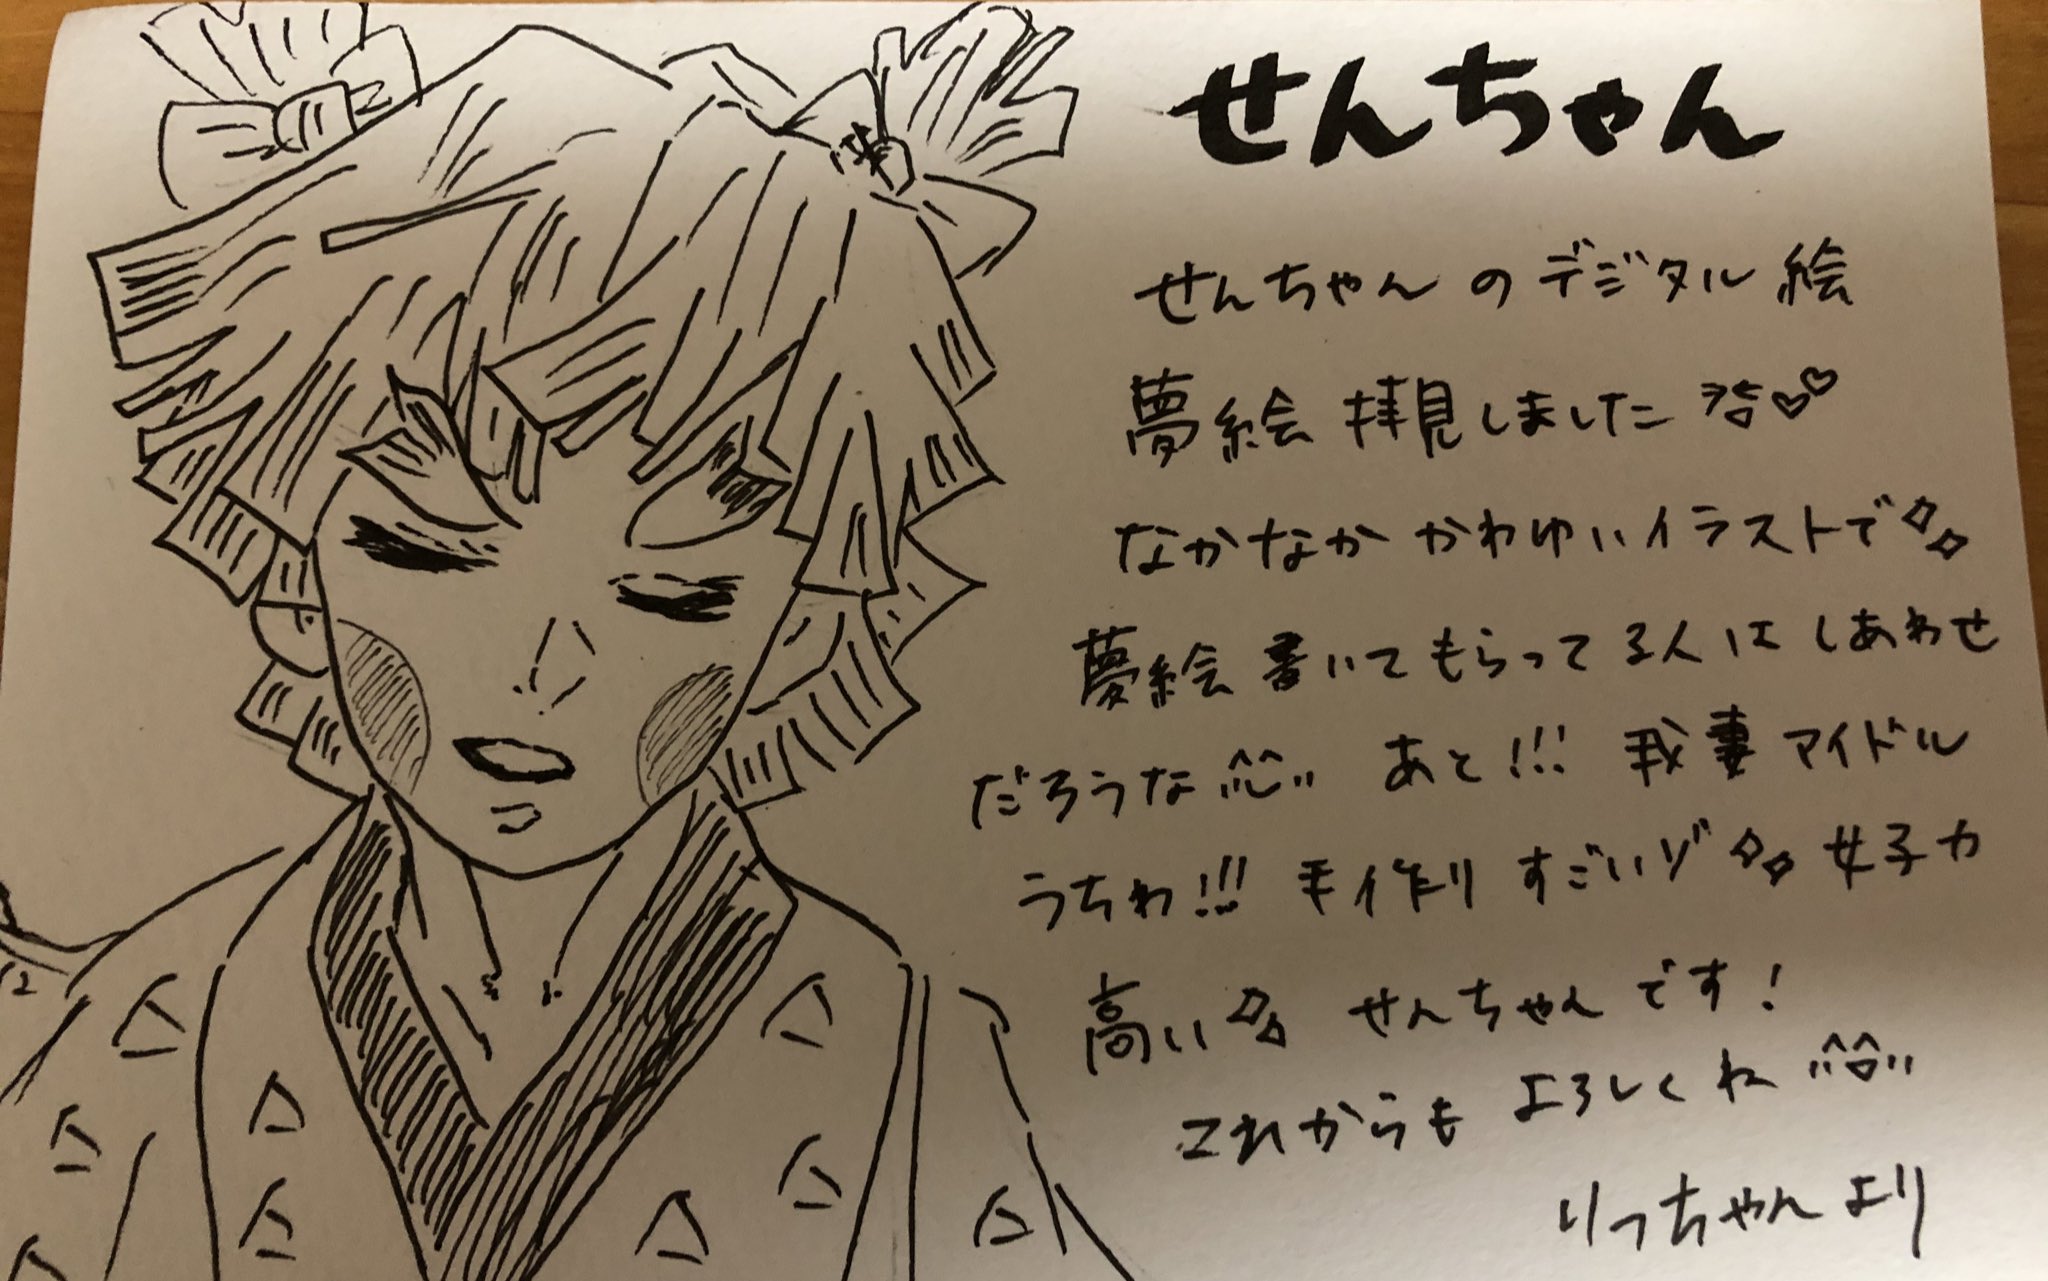 せんちゃん
せんちゃんのデジタル絵
夢絵拝見しました
なかなかかわゆいイラストで
夢絵書いてもらってる人はしあわせ
だろうな あと!!! 我妻アイドル
うちわ!!! 手作りすごいゾ 女子力
高い せんちゃんです!
これからもよろしくね
りっちゃんより